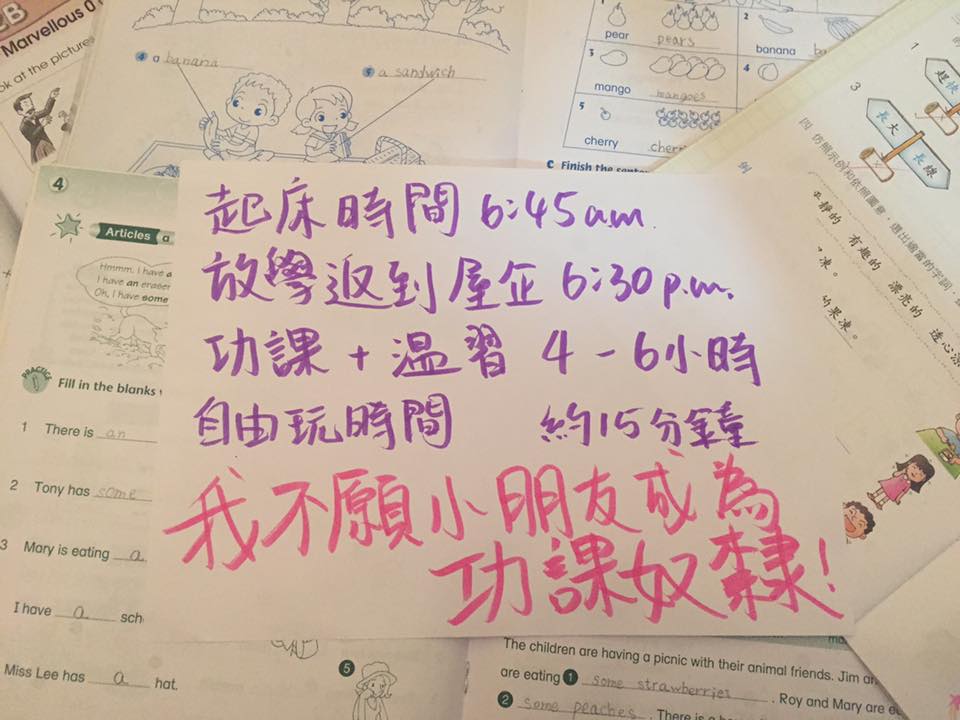 Marvellous
ok at the pictures
4 a banana
5 a sandwich
1
pear pears
2
banana
3
mango mangoes
4
5
cherry
C Finish the
例
1
超快
3
長大
長線
四 仿照示例和依照圖意，選出適當的字詞，
平靜的 有趣的 漂亮的 透心涼
凍。
果凍。
4
Articles a
Hmmm. I have a
I have an eraser
Oh, I have some
PRACTICE
Fill in the blanks
1 There is an
2 Tony has some
3 Mary is eating a
I have a sch
Miss Lee has a hat.
起床時間 6:45 a.m.
放學返到屋企 6:30 p.m.
功課 + 温習 4 - 6小時
自由玩時間 約15分鐘
我不願小朋友成為
功課奴隸!
5
The children are having a picnic with their animal friends. Jim
are eating 1 some strawberries . Roy and Mary are
2 some peaches . There is a